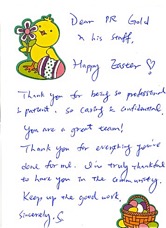 Dear DR Gold
& his staff,
Happy Easter
Thank you for being so professional
& patient. So caring & confidential.
You are a great team!
Thank you for everything you've
done for me. I'm truly thankful
to have you in the community.
Keep up the good work.
Sincerely, S